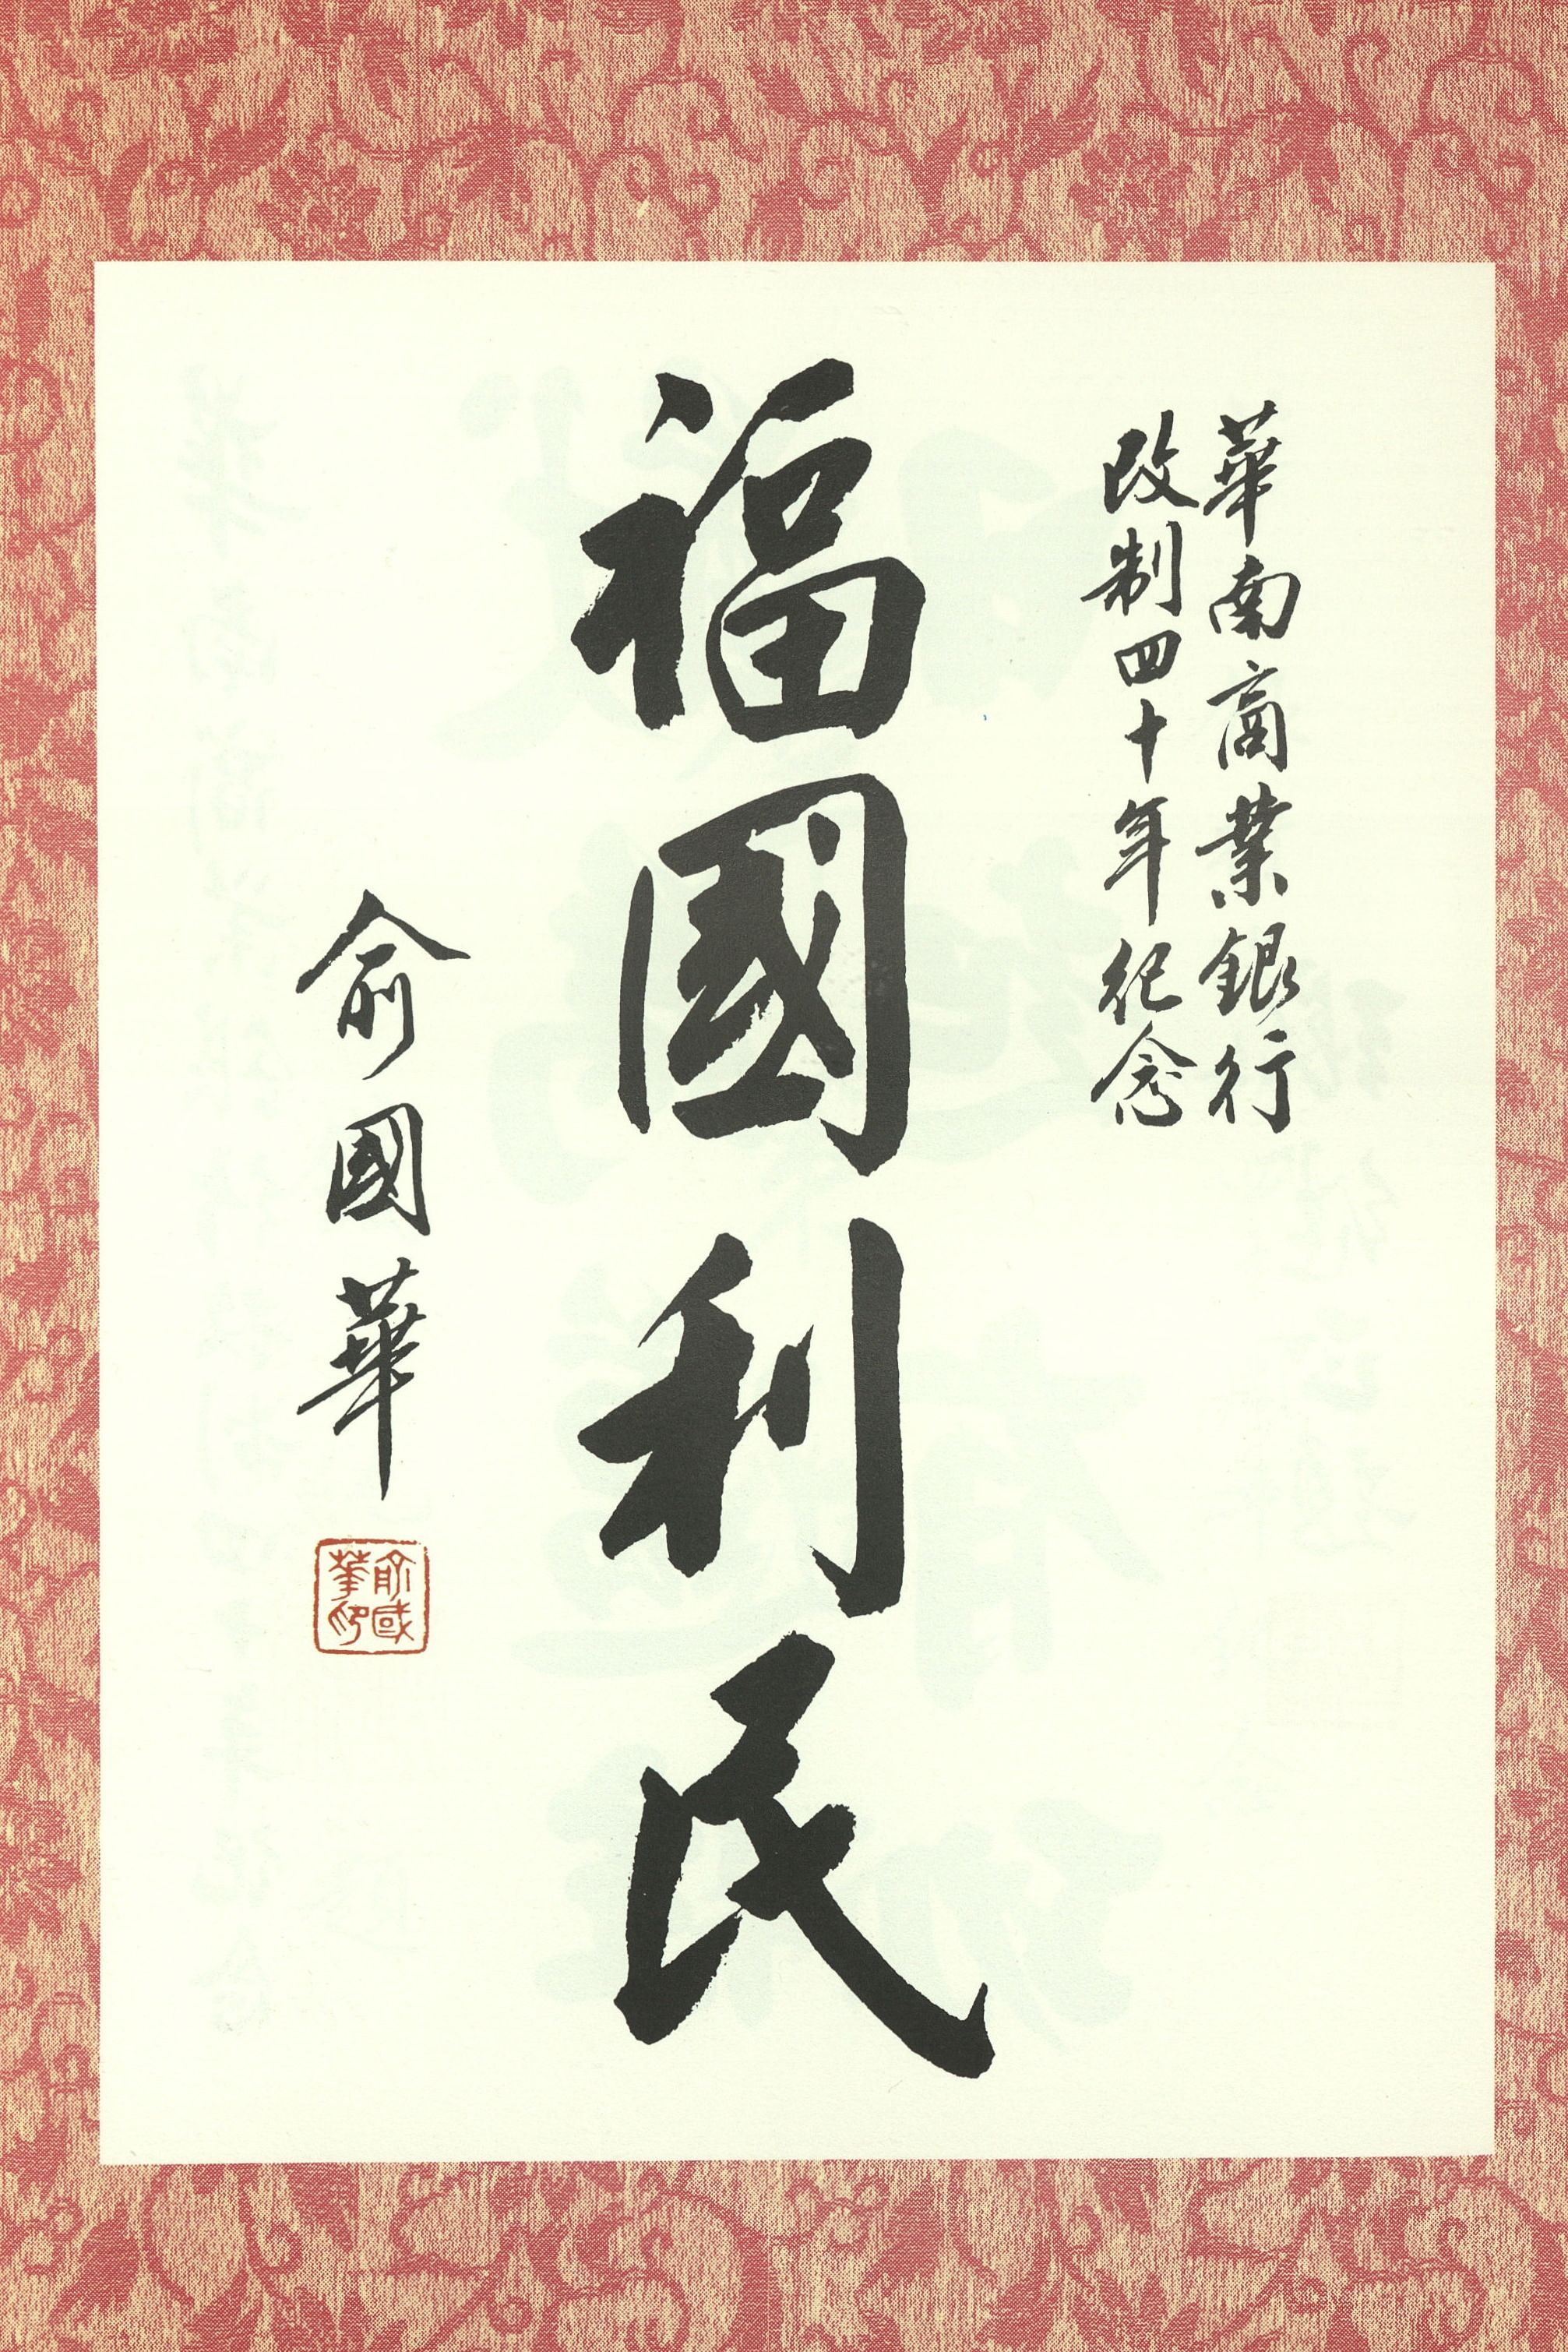 華南商業銀行
改制四十年紀念
福國利民
俞國華
俞國
華印